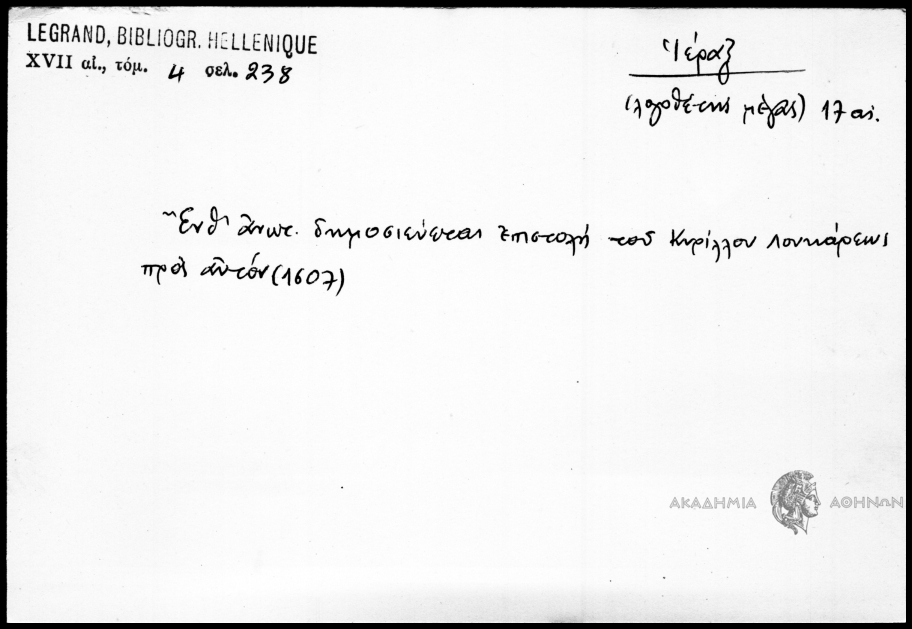 LEGRAND, BIBLIOGR. HELLENIQUE
XVII αἰ., τόμ. 4 σελ. 238
Ἱέραξ
(λογοθέτης μέγας) 17 αι.
Ἔνθ' ἀνωτ. δημοσιεύεται ἐπιστολή τοῦ Κυρίλλου Λουκάρεως
πρὸς αὐτόν (1607)
ΑΚΑΔΗΜΙΑ ΑΘΗΝΩΝ